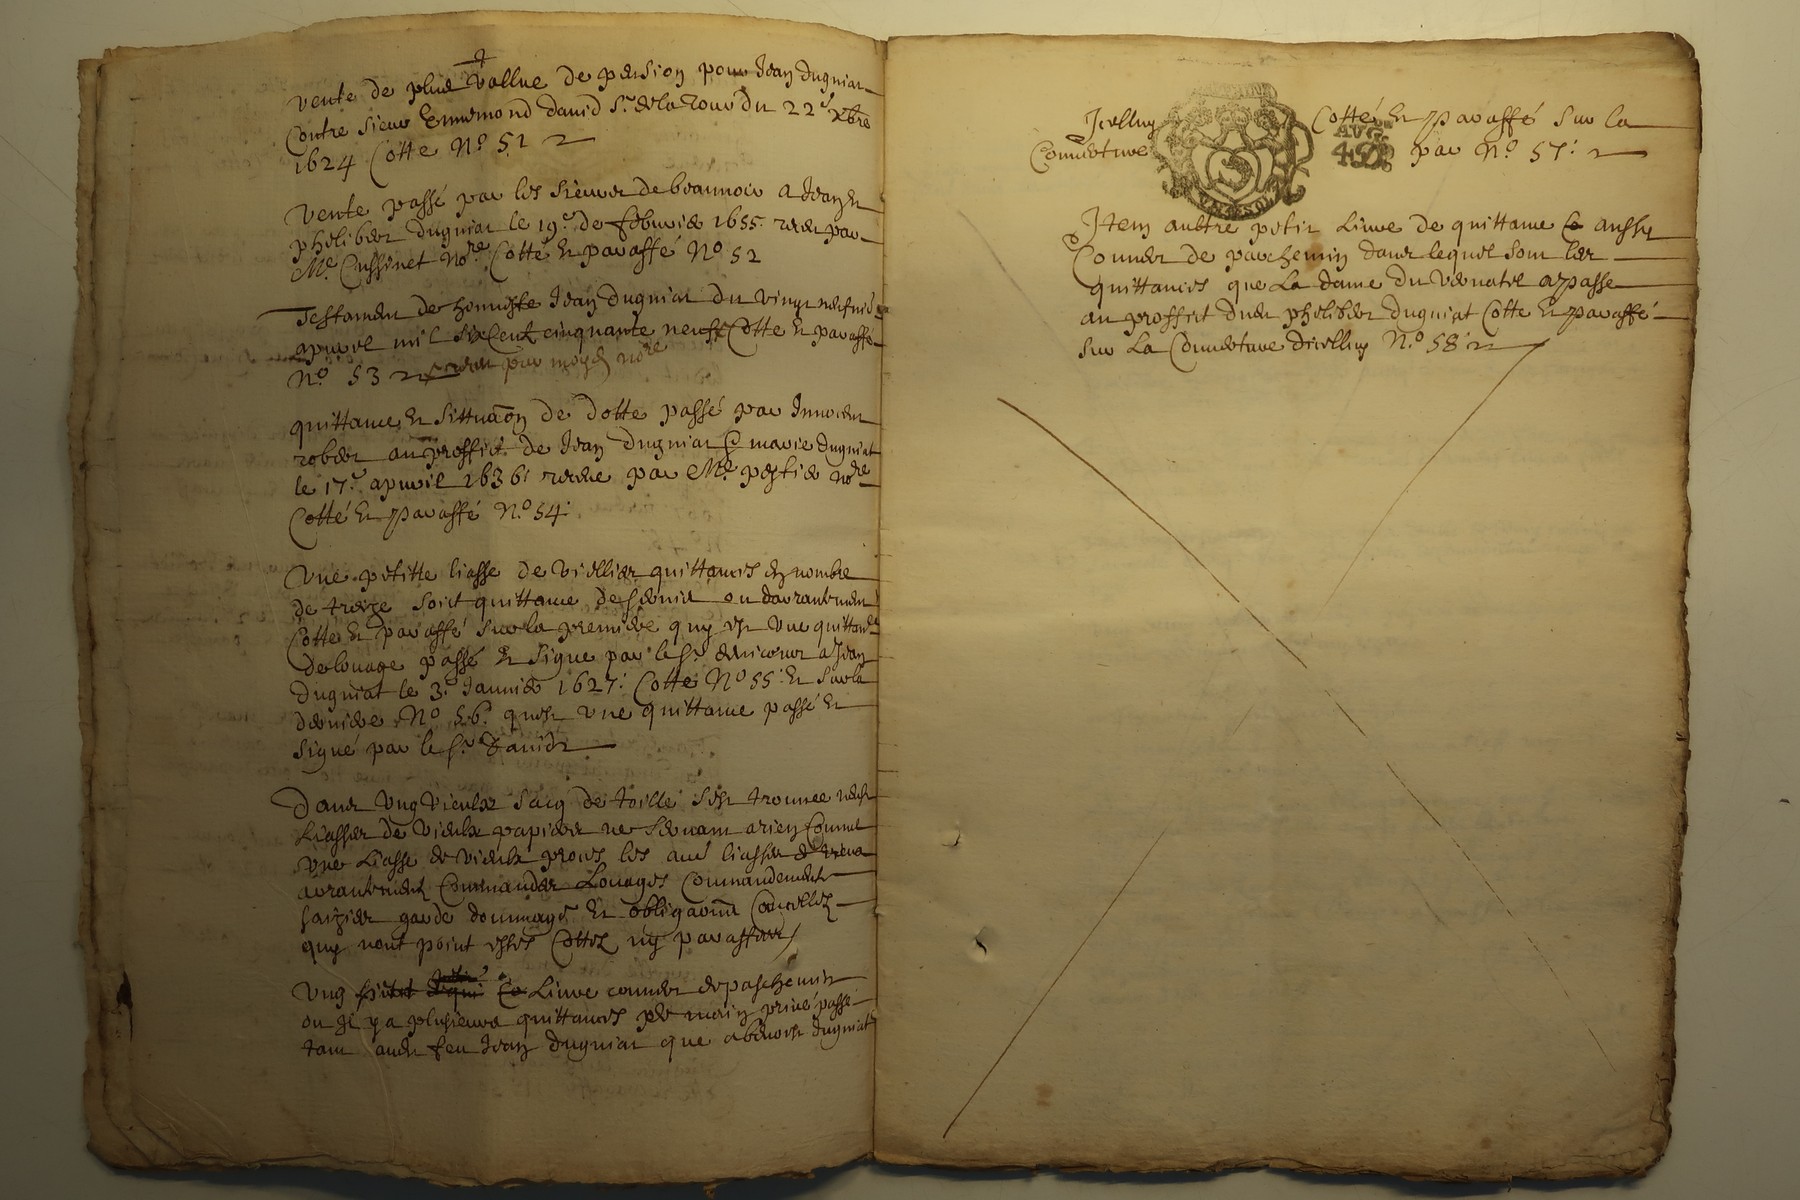 Vente de plus vallue de pension pour Jean Dugniat
Contre Sieur Ennemond david Sr de la Roue du 22e Xbre
1624 Cotte No 51
Vente passé par les Sieurs de beaunoir a Jean et
philibert Dugniat le 19e de febvrier 1655 receu par
Me Cussinet Nore Cotté et paraffé No 52
Testament de honneste Jean Dugniat du vingt neufvie
apvril mil six Cent cinquante neufs Cotte et paraffé
No 53 receu par moyet nore
quittance et sittuaōn de dotte passé par Innocent
robert au proffict de Jean Dugniat et marie Dugniat
le 17e apvril 1636 receue par Me pestier nore
Cotté et paraffé No 54
Une petitte liasse de vieillies quittances en nombre
de treize soict quittance de servis ou davrantement
Cotte et paraffé sur la premiere quy est une quittance
de louage passé et signe par le Sr a Jean
Dugniat le 3e Janvier 1627 Cotte No 55 Et sur la
derniere No 56 quest une quittance passé et
signé par le Sr David
Dans ung vieulx sacq de toille sest trouvee neuf
Liasses de vieulx papiers ne servant a rien Comme
une Liasse de vieulx proces les au liasses
avrantement Commandes Louages Commandements
saizies garde dommage et obligaōns Concellés
quy nont point estes Cottes ny paraffees
Ung Livre couvert de paschemin
ou il y a plusieurs quittances de main privé passe
tant audit feu Jean Dugniat que a benoist dugniat
Icelluy Cotté et paraffé sur la
Couverture par No 57
AUG.
Item aultre petit Livre de quittance aussy
Couvert de parchemin dans lequel sont les
quittances que La dame du vernatel a passe
au proffict dudit philibert Dugniat Cotte et paraffé
sur La Couverture dicelluy No 58